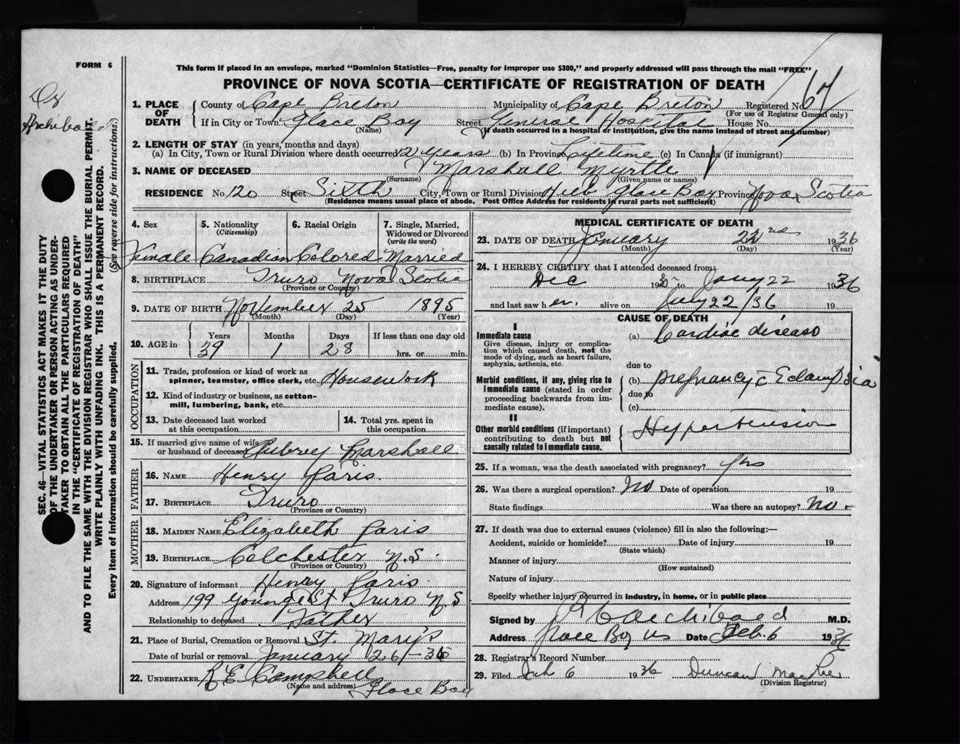 FORM 6
This form if placed in an envelope, marked "Dominion Statistics—Free, penalty for improper use $300," and properly addressed will pass through the mail "FREE"
PROVINCE OF NOVA SCOTIA—CERTIFICATE OF REGISTRATION OF DEATH
Dr
Archibald
SEC. 46—VITAL STATISTICS ACT MAKES IT THE DUTY
OF THE UNDERTAKER OR PERSON ACTING AS UNDER-
TAKER TO OBTAIN ALL THE PARTICULARS REQUIRED
IN THE "CERTIFICATE OF REGISTRATION OF DEATH"
AND TO FILE THE SAME WITH THE DIVISION REGISTRAR WHO SHALL ISSUE THE BURIAL PERMIT.
WRITE PLAINLY WITH UNFADING INK. THIS IS A PERMANENT RECORD.
Every item of information should be carefully supplied. (See reverse side for instructions.)
1. PLACE OF DEATH
County of Cape Breton Municipality of Cape Breton Registered No. 67
(For use of Registrar General only)
If in City or Town Glace Bay Street General Hospital House No.
(Name) (If death occurred in a hospital or institution, give the name instead of street and number)
2. LENGTH OF STAY (in years, months and days)
(a) In City, Town or Rural Division where death occurred 12 years (b) In Province Lifetime (c) In Canada (if immigrant)
3. NAME OF DECEASED Marshall Myrtle
(Surname) (Given name or names)
RESIDENCE No. 120 Street Sixth City, Town or Rural Division New Glace Bay Province Nova Scotia
(Residence means usual place of abode. Post Office Address for residents in rural parts not sufficient)
4. Sex 5. Nationality (Citizenship) 6. Racial Origin 7. Single, Married, Widowed or Divorced (write the word)
Female Canadian Colored Married
8. BIRTHPLACE Truro Nova Scotia
(Province or Country)
9. DATE OF BIRTH November 25 1895
(Month) (Day) (Year)
10. AGE in Years Months Days If less than one day old
39 1 28 hrs. or min.
OCCUPATION
11. Trade, profession or kind of work as spinner, teamster, office clerk, etc. Housework
12. Kind of industry or business, as cotton-mill, lumbering, bank, etc.
13. Date deceased last worked at this occupation
14. Total yrs. spent in this occupation
15. If married give name of wife or husband of deceased Aubrey Marshall
FATHER
16. NAME Henry Paris.
17. BIRTHPLACE Truro
(Province or Country)
MOTHER
18. MAIDEN NAME Elizabeth Paris
19. BIRTHPLACE Colchester N.S.
(Province or Country)
20. Signature of informant Henry Paris.
Address 199 Younge St Truro N S
Relationship to deceased Father
21. Place of Burial, Cremation or Removal St. Mary's
Date of burial or removal January 26 - 36
22. UNDERTAKER R E Campbell
(Name and address) Glace Bay
MEDICAL CERTIFICATE OF DEATH
23. DATE OF DEATH January 22nd 1936
(Month) (Day) (Year)
24. I HEREBY CERTIFY that I attended deceased from
Dec 193 to Jany 22 1936
and last saw her alive on July 22/36 19
CAUSE OF DEATH
I
Immediate cause
Give disease, injury or complication which caused death, not the mode of dying, such as heart failure, asphyxia, asthenia, etc.
(a) Cardiac disease
due to
Morbid conditions, if any, giving rise to immediate cause (stated in order proceeding backwards from immediate cause).
(b) pregnancy c Eclampsia
due to
(c)
II
Other morbid conditions (if important) contributing to death but not causally related to immediate cause.
Hypertension
25. If a woman, was the death associated with pregnancy? yes
26. Was there a surgical operation? No Date of operation 19
State findings Was there an autopsy? No.
27. If death was due to external causes (violence) fill in also the following:—
Accident, suicide or homicide? Date of injury 19
(State which)
Manner of injury
(How sustained)
Nature of injury
Specify whether injury occurred in industry, in home, or in public place
Signed by Archibald M.D.
Address Glace Bay NS Date Feb. 6 1936
28. Registrar's Record Number
29. Filed Feb 6 1936 Duncan
(Division Registrar)